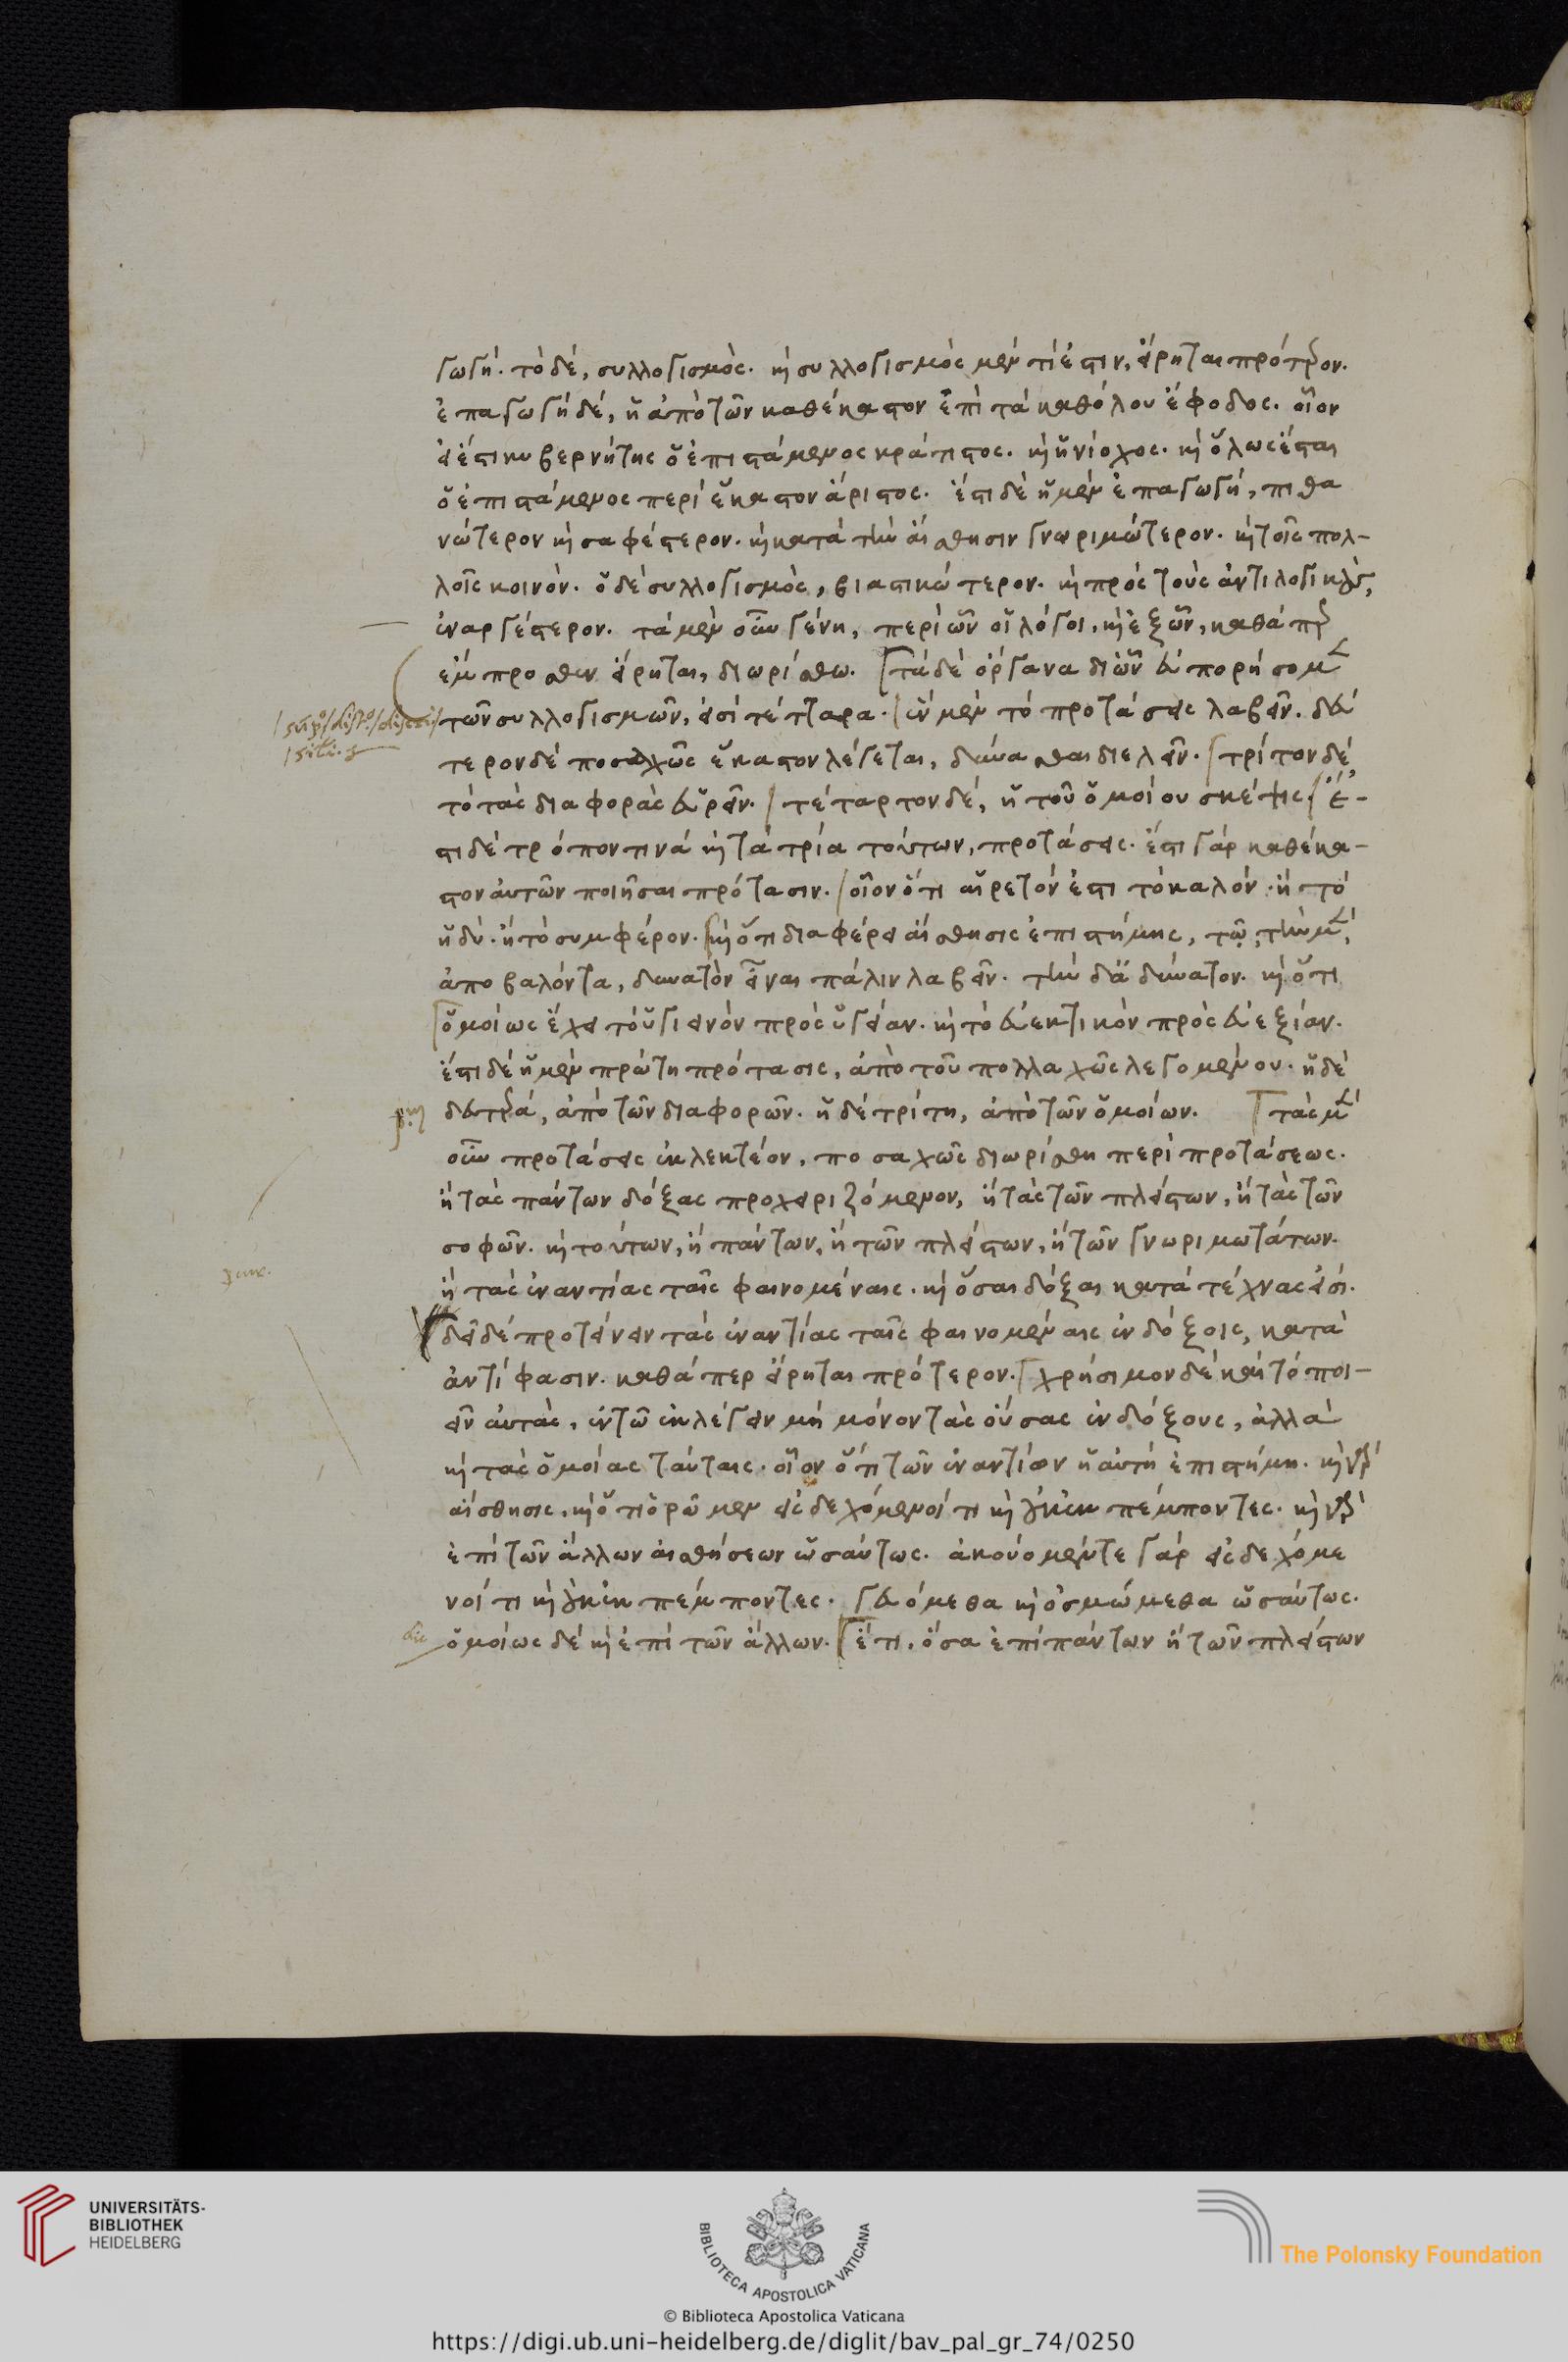 γωγή. τὸ δέ, συλλογισμός. καὶ συλλογισμὸς μὲν τί ἐστιν, εἴρηται πρότερον.
ἐπαγωγὴ δέ, ἡ ἀπὸ τῶν καθέκαστον ἐπὶ τὰ καθόλου ἔφοδος. οἷον
εἰ ἔστι κυβερνήτης ὁ ἐπιστάμενος κράτιστος. καὶ ἡνίοχος. καὶ ὅλως ἔσται
ὁ ἐπιστάμενος περὶ ἕκαστον ἄριστος. ἔστι δὲ ἡ μὲν ἐπαγωγή, πιθα
νώτερον καὶ σαφέστερον. καὶ κατὰ τὴν αἴσθησιν γνωριμώτερον. καὶ τοῖς πολ-
λοῖς κοινόν. ὁ δὲ συλλογισμός, βιαστικώτερον. καὶ πρὸς τοὺς ἀντιλογικοὺς,
ἐναργέστερον. τὰ μὲν οὖν γένη, περὶ ὧν οἱ λόγοι, καὶ ἐξ ὧν, καθάπερ
ἔμπροσθεν εἴρηται, διωρίσθω. τὰ δὲ ὄργανα δι ὧν εὐπορήσομεν
τῶν συλλογισμῶν, εἰσὶ τέτταρα. ἓν μὲν τὸ προτάσεις λαβεῖν. δεύ
τερον δὲ ποσαχῶς ἕκαστον λέγεται, δύνασθαι διελεῖν. τρίτον δέ
τὸ τὰς διαφορὰς εὑρεῖν. τέταρτον δέ, ἡ τοῦ ὁμοίου σκέψις. ἔ-
στι δὲ τρόπον τινὰ καὶ τὰ τρία τούτων, προτάσεις. ἔστι γὰρ καθέκα-
στον αὐτῶν ποιῆσαι πρότασιν. οἷον ὅτι αἱρετόν ἐστι τὸ καλόν. ἢ τὸ
ἡδύ. ἢ τὸ συμφέρον. καὶ ὅτι διαφέρει αἴσθησις ἐπιστήμης, τῷ, τὴν μὲν
ἀποβαλόντα, δυνατὸν εἶναι πάλιν λαβεῖν. τὴν δ ἀδύνατον. καὶ ὅτι
ὁμοίως ἔχει τὸ ὑγιεινὸν πρὸς ὑγείαν. καὶ τὸ εὐεκτικὸν πρὸς εὐεξίαν.
ἔστι δὲ ἡ μὲν πρώτη πρότασις, ἀπὸ τοῦ πολλαχῶς λεγομένου. ἡ δὲ
δευτέρα, ἀπὸ τῶν διαφορῶν. ἡ δὲ τρίτη, ἀπὸ τῶν ὁμοίων. τὰς μὲν
οὖν προτάσεις ἐκλεκτέον, ποσαχῶς διωρίσθη περὶ προτάσεως.
ἢ τὰς πάντων δόξας προχειριζόμενον, ἢ τὰς τῶν πλείστων, ἢ τὰς τῶν
σοφῶν. καὶ τούτων, ἢ πάντων, ἢ τῶν πλείστων, ἢ τῶν γνωριμωτάτων.
ἢ τὰς ἐναντίας ταῖς φαινομέναις. καὶ ὅσαι δόξαι κατὰ τέχνας εἰσί.
δεῖ δὲ προτείνειν τὰς ἐναντίας ταῖς φαινομέναις ἐνδόξοις, κατὰ
ἀντίφασιν. καθάπερ εἴρηται πρότερον. χρήσιμον δὲ καὶ τὸ ποι-
εῖν αὐτάς, ἐν τῷ ἐκλέγειν μὴ μόνον τὰς οὔσας ἐνδόξους, ἀλλὰ
καὶ τὰς ὁμοίας ταύταις. οἷον ὅτι τῶν ἐναντίων ἡ αὐτὴ ἐπιστήμη. καὶ γὰρ
αἴσθησις. καὶ ὅτι ὁρῶμεν εἰσδεχόμενοί τι καὶ οὐκ ἐκπέμποντες. καὶ γὰρ
ἐπὶ τῶν ἄλλων αἰσθήσεων ὡσαύτως. ἀκούομέν τε γὰρ εἰσδεχόμε
νοί τι καὶ οὐκ ἐκπέμποντες. γευόμεθα καὶ ὀσμώμεθα ὡσαύτως.
ὁμοίως δὲ καὶ ἐπὶ τῶν ἄλλων. ἔτι, ὅσα ἐπὶ πάντων ἢ τῶν πλείστων
UNIVERSITÄTS-
BIBLIOTHEK
HEIDELBERG
BIBLIOTECA APOSTOLICA VATICANA
The Polonsky Foundation
© Biblioteca Apostolica Vaticana
https://digi.ub.uni-heidelberg.de/diglit/bav_pal_gr_74/0250